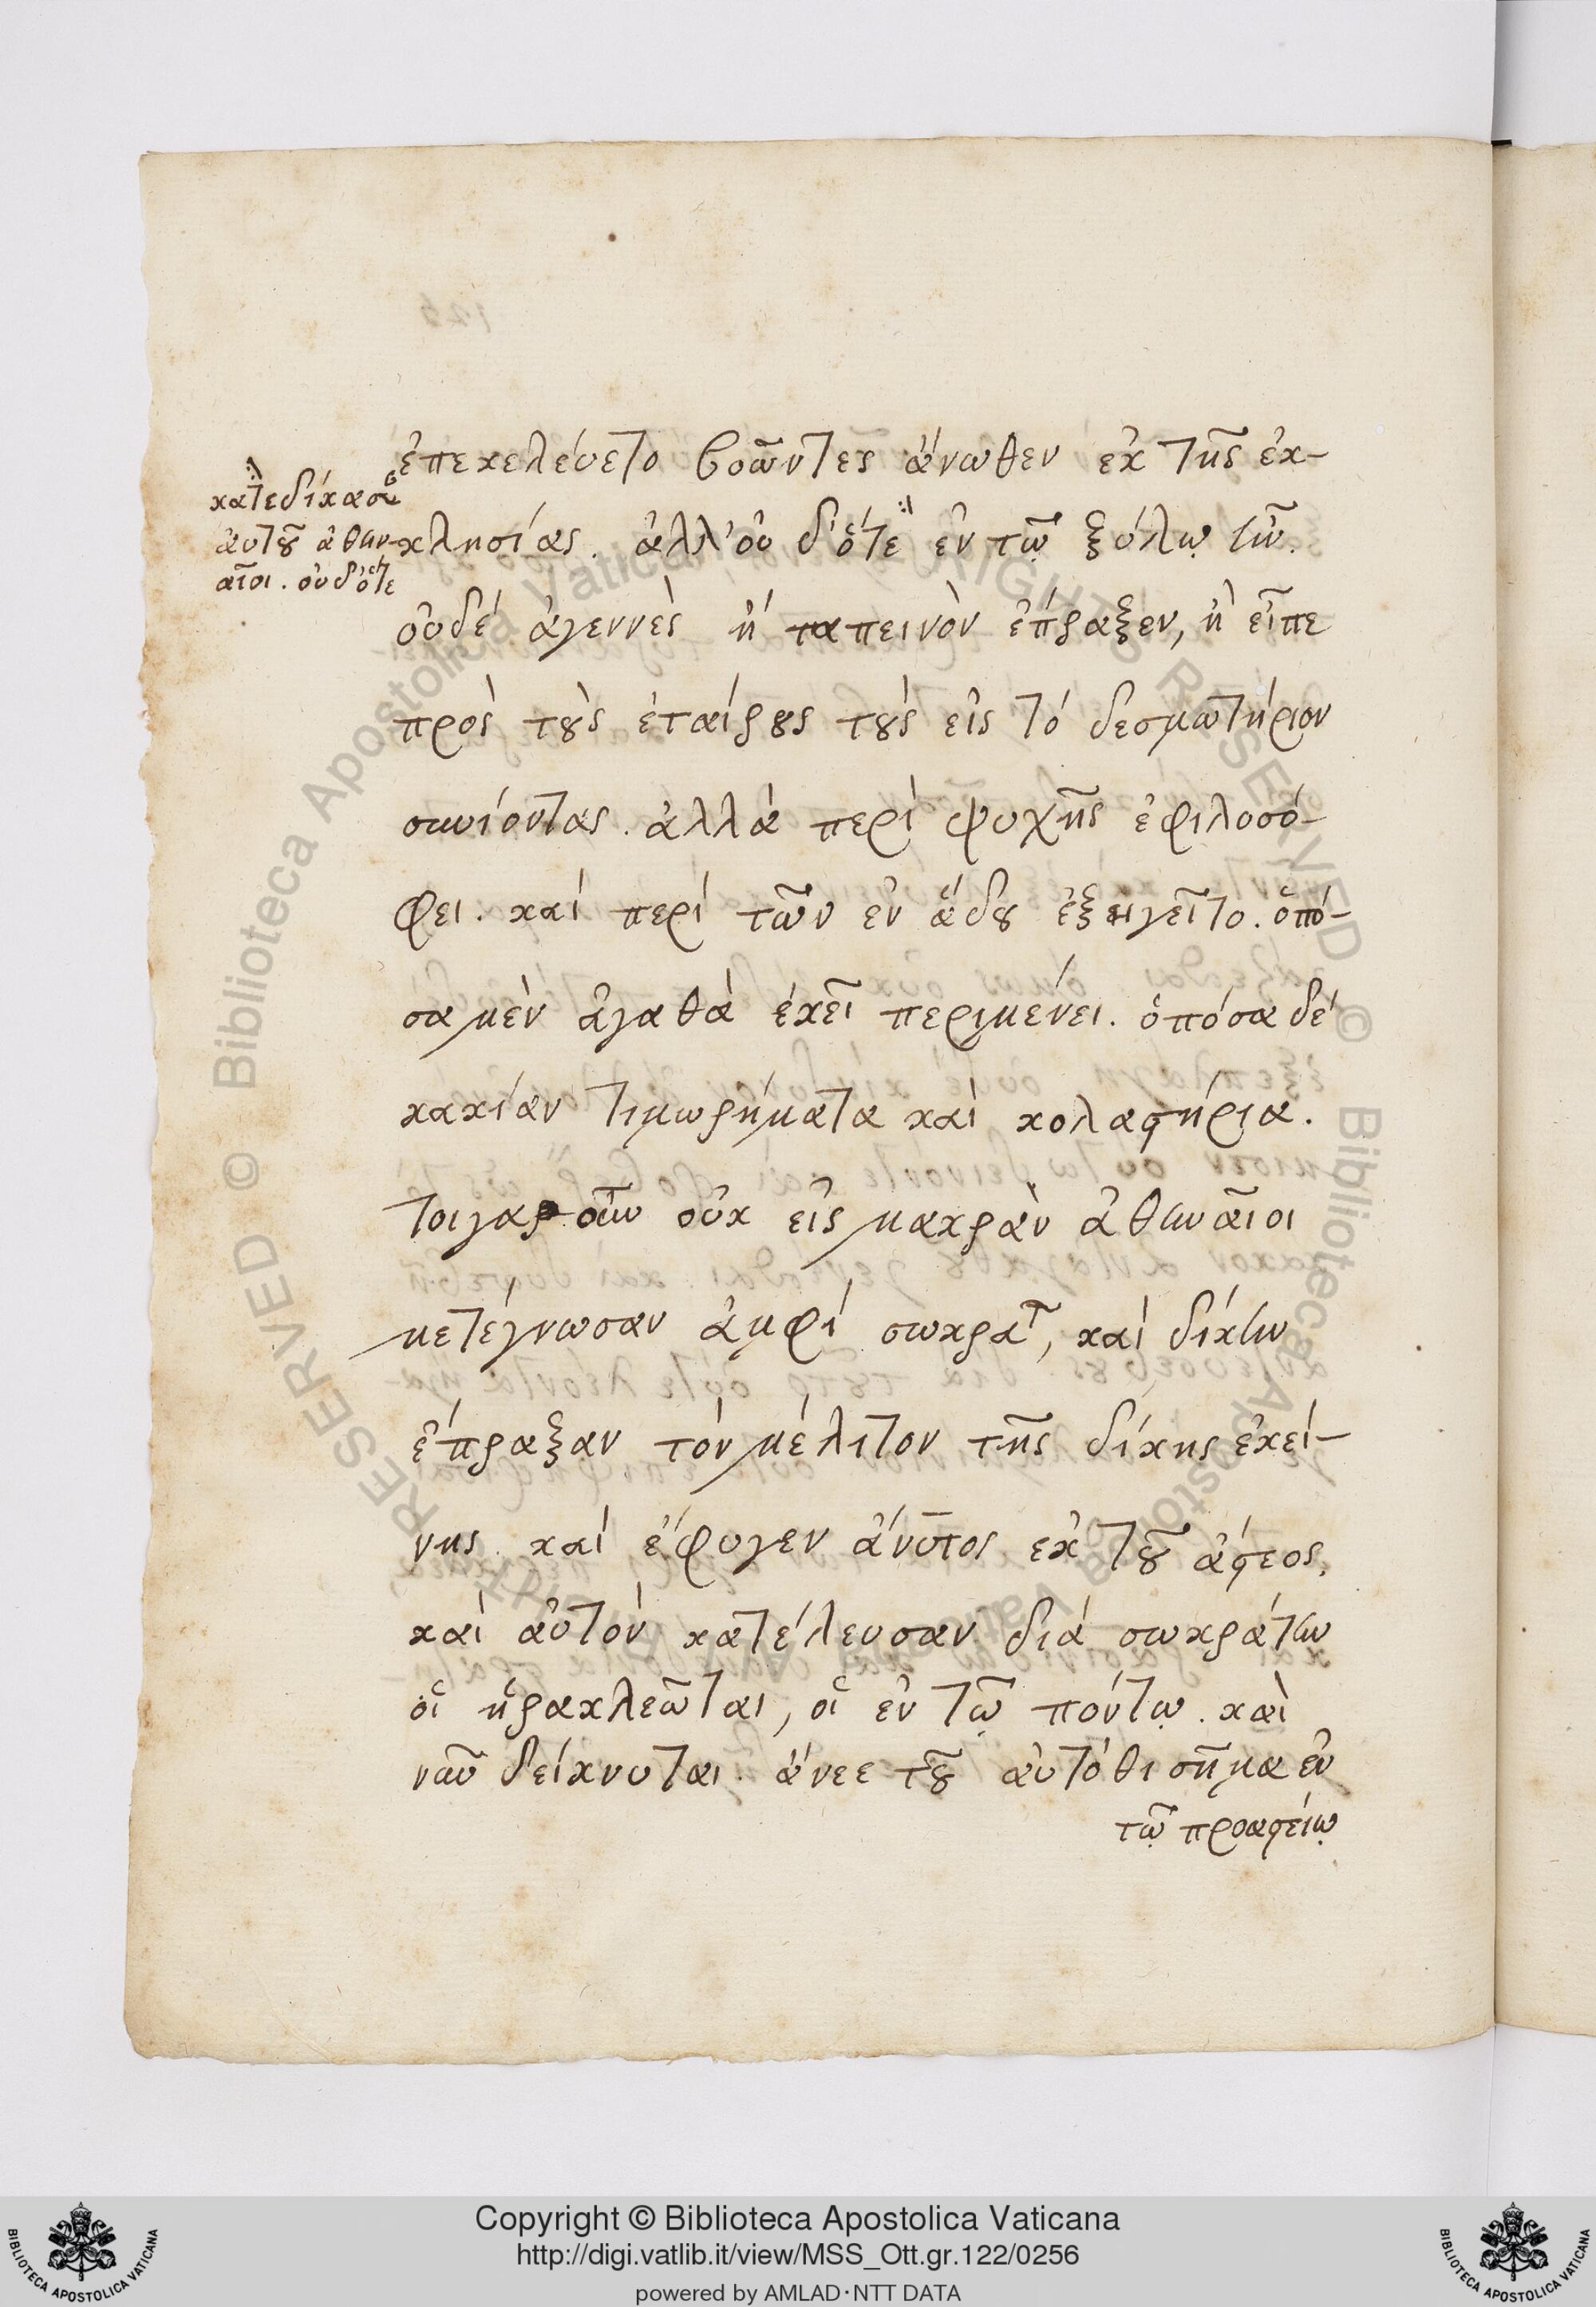 ἐπεκελεύετο βοῶντες ἄνωθεν ἐκ τῆς ἐκ-
κλησίας. ἀλλ' οὐδ' ὅτε ἐν τῷ ξύλῳ ἦν.
κατεδίκασαν
αὐτοῦ ἀθην-
αῖοι. οὐδ' ὅτε
οὐδὲ ἀγεννὲς ἢ ταπεινὸν ἔπραξεν, ἢ εἶπε
πρὸς τοὺς ἑταίρους τοὺς εἰς τὸ δεσμωτήριον
συνιόντας. ἀλλὰ περὶ ψυχῆς ἐφιλοσό-
φει. καὶ περὶ τῶν ἐν ἅδου ἐξηγεῖτο. ὁπό-
σα μὲν ἀγαθὰ ἐκεῖ περιμένει. ὁπόσα δὲ
κακίαν τιμωρήματα καὶ κολαστήρια.
τοιγαροῦν οὐκ εἰς μακρὰν ἀθηναῖοι
μετέγνωσαν ἀμφὶ σωκράτ, καὶ δίκην
ἔπραξαν τὸν μέλιτον τῆς δίκης ἐκεί-
νης. καὶ ἔφυγεν ἄνυτος ἐκ τοῦ ἄστεος,
καὶ αὐτὸν κατέλευσαν διὰ σωκράτην
οἱ ἡρακλεῶται, οἱ ἐν τῷ πόντῳ. καὶ
νῦν δείκνυται. ἄνεε τοῦ αὐτόθι σῆμα ἐν
τῷ προαστείῳ
Copyright © Biblioteca Apostolica Vaticana
http://digi.vatlib.it/view/MSS_Ott.gr.122/0256
powered by AMLAD·NTT DATA
BIBLIOTECA APOSTOLICA VATICANA
BIBLIOTECA APOSTOLICA VATICANA